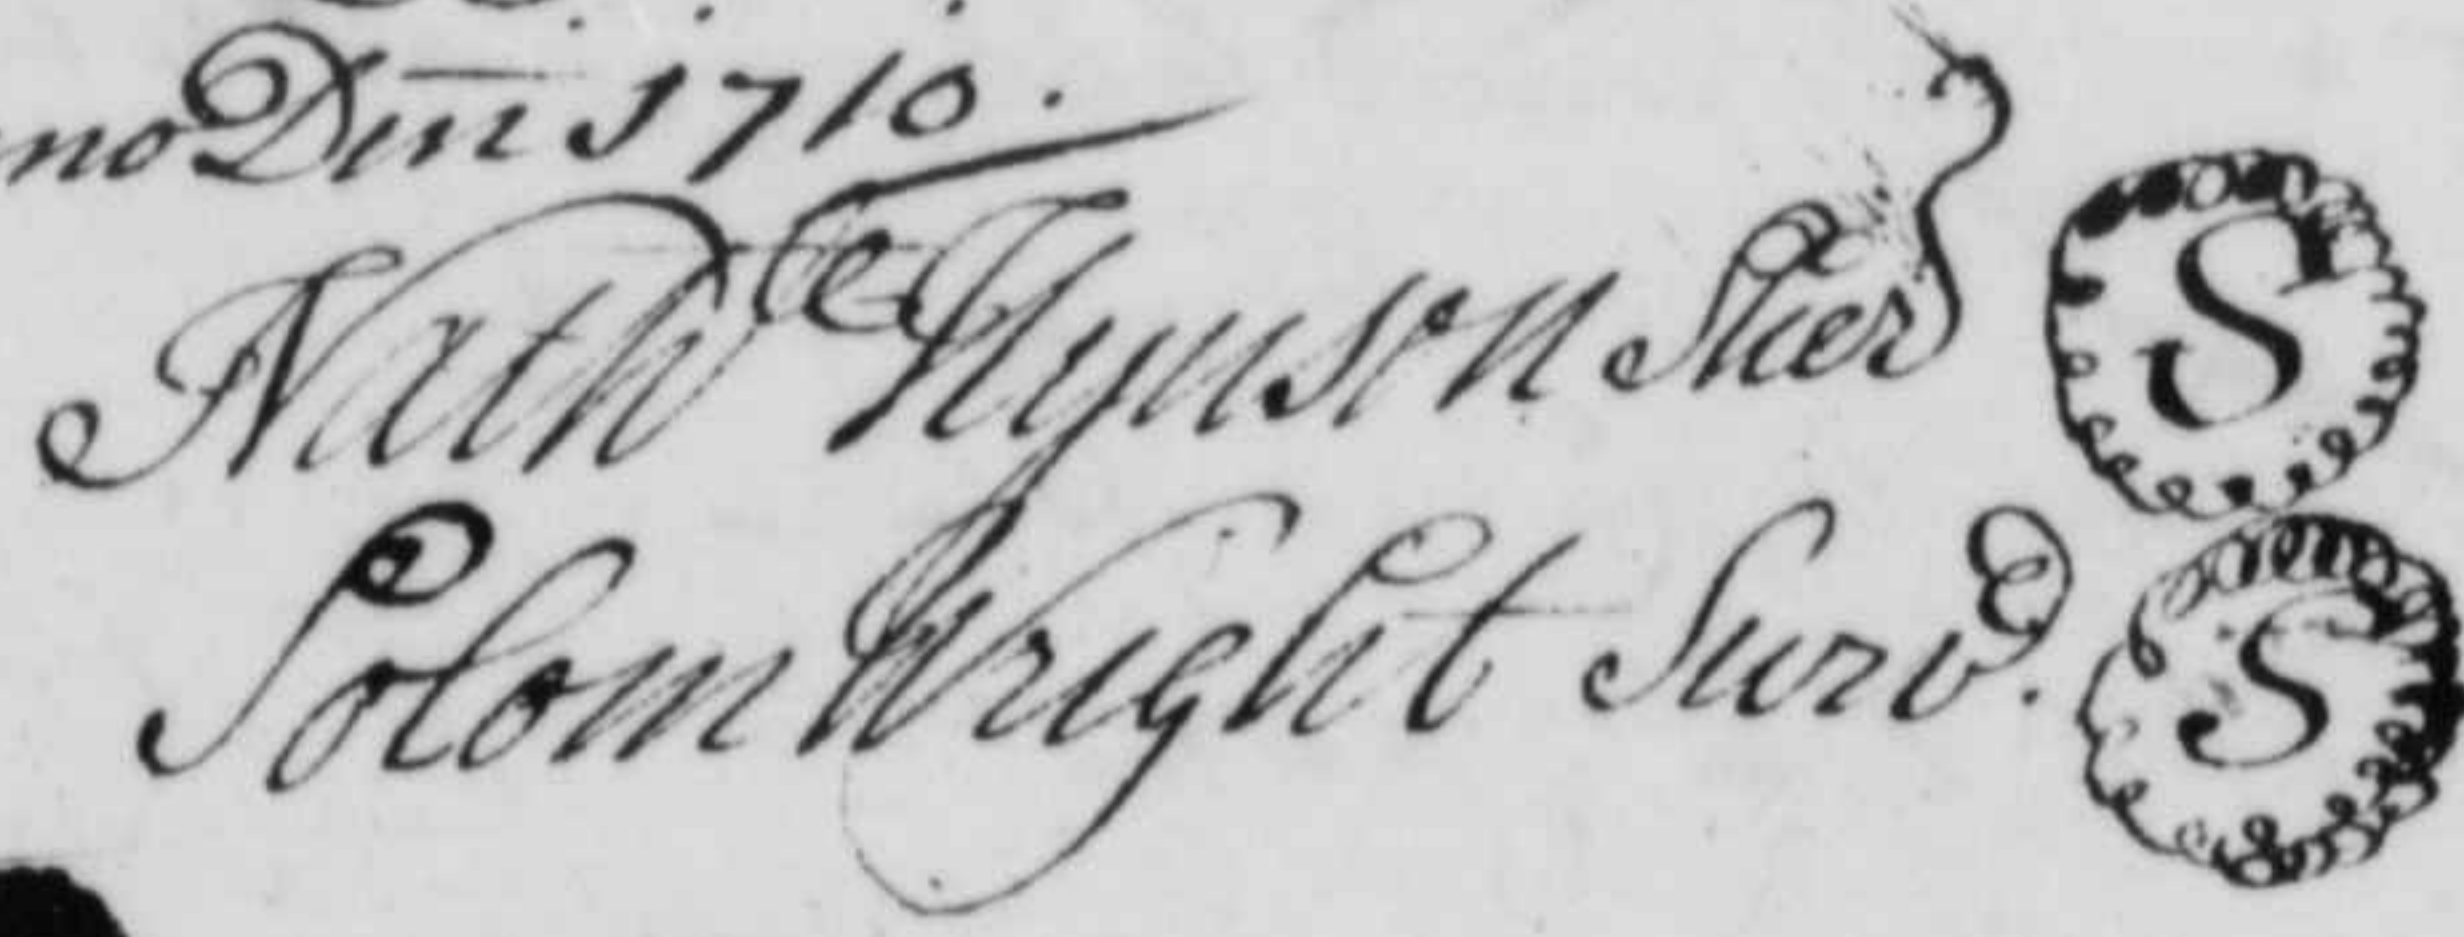 no Dm̄ 1710.
Nath Hynson Sher S
Solom Wright Surv. S